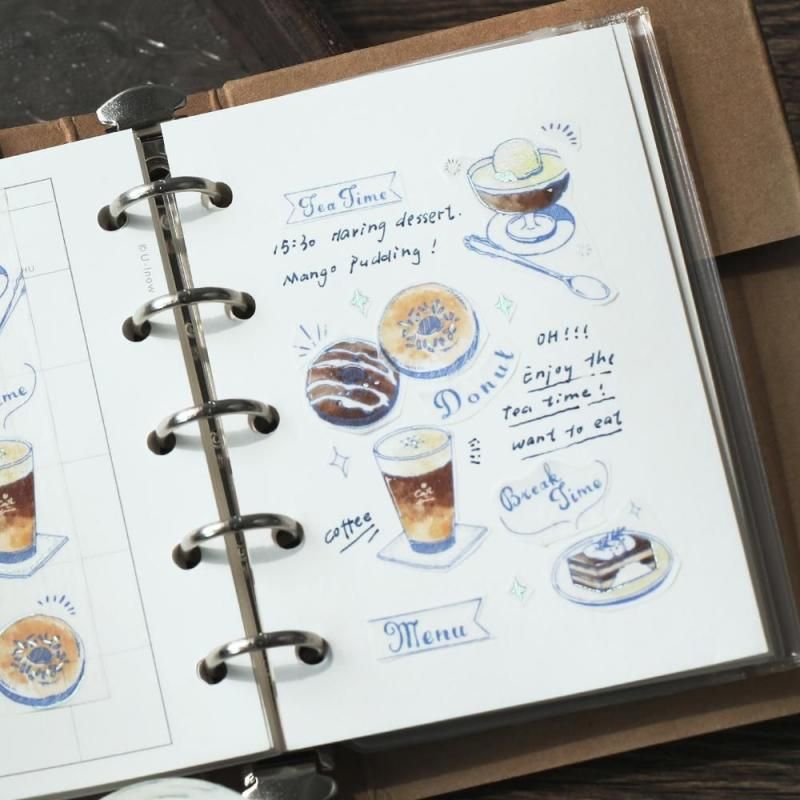 ©U-Inow
me
Tea Time
15:30 Having dessert.
Mango Pudding!
Donut
OH!!!
Enjoy the
Tea time!
want to eat
Break
Time
coffee
Menu